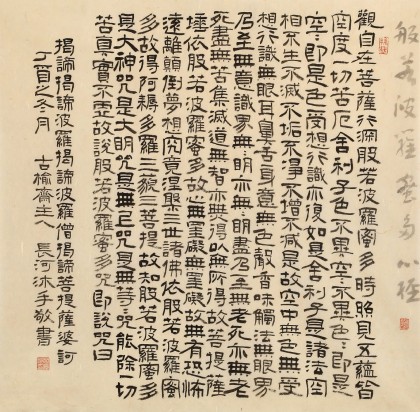 般若波羅蜜多心經
觀自在菩薩行深般若波羅蜜多時照見五蘊皆
空度一切苦厄舍利子色不異空〻不異色〻即是
空〻即是色受想行識亦復如是舍利子是諸法空
相不生不滅不垢不淨不增不減是故空中無色無受
想行識無眼耳鼻舌身意無色聲香味觸法無眼界
乃至無意識界無〻明亦無〻明盡乃至無老死亦無老
死盡無苦集滅道無智亦無得以無所得故菩提薩
埵依般若波羅蜜多故心無罣礙無罣礙故無有恐怖
遠離顛倒夢想究竟涅槃三世諸佛依般若波羅蜜
多故得阿耨多羅三藐三菩提故知般若波羅蜜多
是大神咒是大明咒是無上咒是無等〻咒能除一切
苦真實不虛故說般若波羅蜜多咒即說咒曰
揭諦揭諦波羅揭諦波羅僧揭諦菩提薩婆訶
丁酉之冬月 古榆齋主人 長河沐手敬書